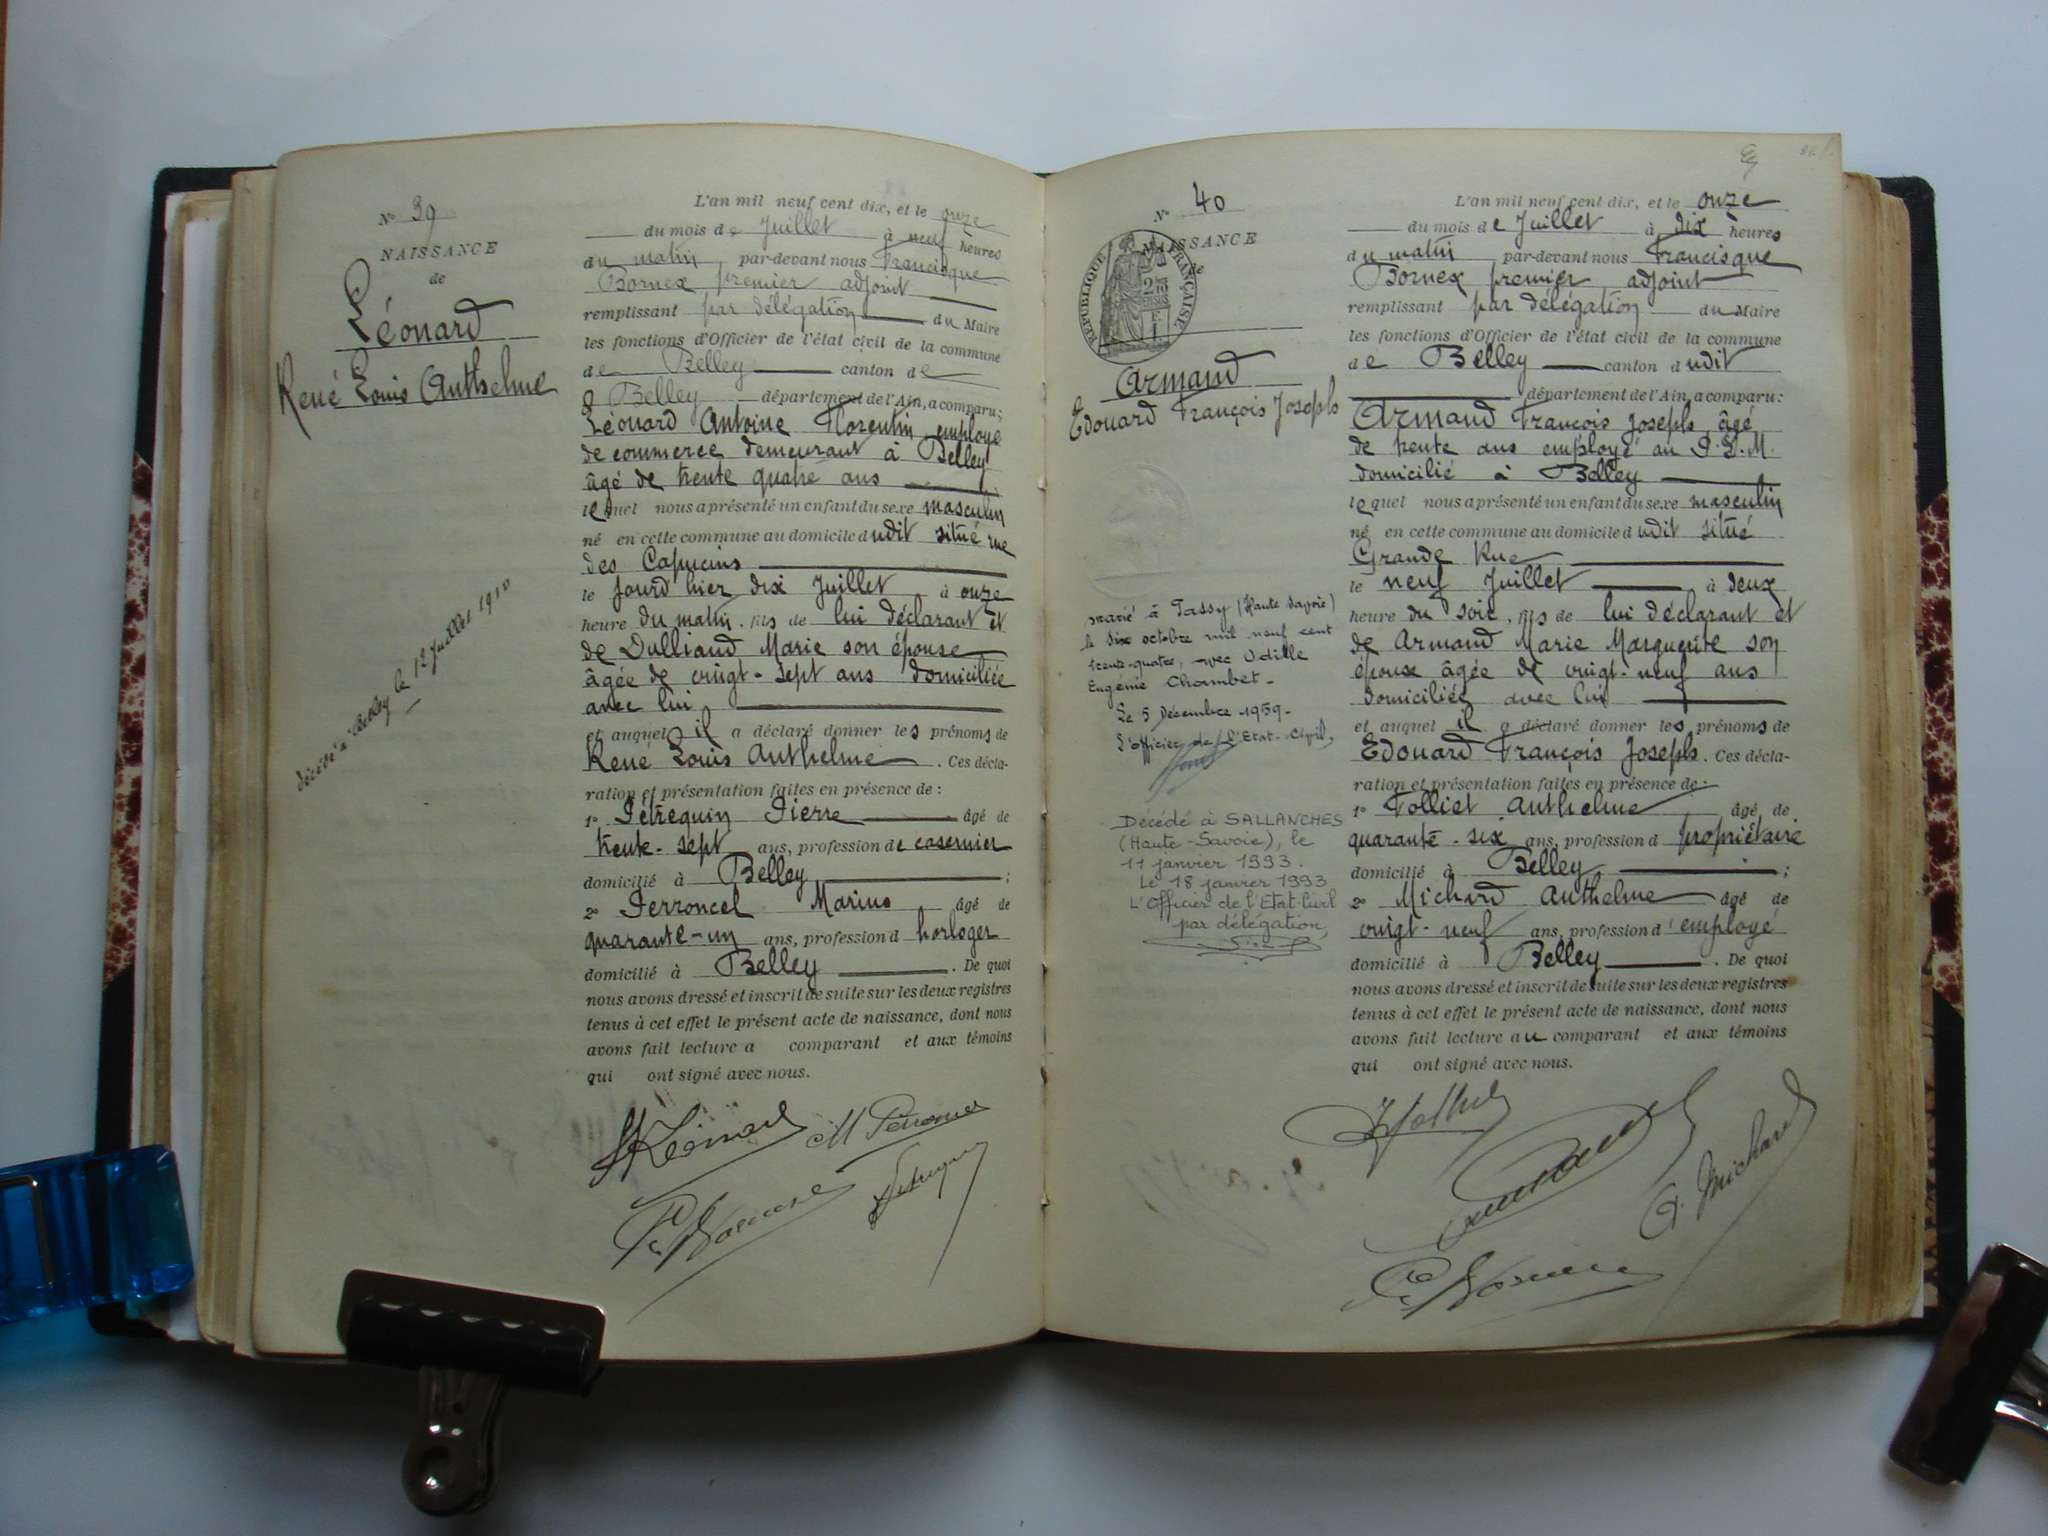 N° 39
NAISSANCE
de
Léonard
René Louis Anthelme
décédé à Belley le 12 Juillet 1910
L'an mil neuf cent dix, et le onze
du mois de Juillet à neuf heures
du matin, par-devant nous Francisque
Bornex premier adjoint
remplissant par délégation du Maire
les fonctions d'Officier de l'état civil de la commune
de Belley canton de
Belley département de l'Ain, a comparu:
Léonard Antoine Florentin employé
de commerce demeurant à Belley
âgé de trente quatre ans
lequel nous a présenté un enfant du sexe masculin
né en cette commune au domicile dudit situé rue
des Capucins
le jourd'hier dix Juillet à onze
heure du matin, fils de lui déclarant et
de Dulliand Marie son épouse
âgée de vingt-sept ans domiciliée
avec lui
et auquel il a déclaré donner les prénoms de
René Louis Anthelme. Ces décla-
ration et présentation faites en présence de:
1° Pétrequin Pierre âgé de
trente-sept ans, profession de casernier
domicilié à Belley;
2° Perroncel Marius âgé de
quarante-un ans, profession d horloger
domicilié à Belley. De quoi
nous avons dressé et inscrit de suite sur les deux registres
tenus à cet effet le présent acte de naissance, dont nous
avons fait lecture a comparant et aux témoins
qui ont signé avec nous.
Léonard
N° 40
NAISSANCE
de
REPUBLIQUE FRANÇAISE
Armand
Edouard François Joseph
marié à Passy (Haute Savoie)
le six octobre mil neuf cent
trente-quatre, avec Odille
Eugénie Chambet-
Le 5 Décembre 1959-
L'officier de l'Etat-Civil,
Décédé à SALLANCHES
(Haute-Savoie), le
11 janvier 1993.
Le 18 janvier 1993
L'Officier de l'Etat Civil
par délégation,
L'an mil neuf cent dix, et le onze
du mois de Juillet à dix heures
du matin, par-devant nous Francisque
Bornex premier adjoint
remplissant par délégation du Maire
les fonctions d'Officier de l'état civil de la commune
de Belley canton dudit
département de l'Ain, a comparu:
Armand François Joseph âgé
de trente ans employé au P.L.M.
domicilié à Belley
lequel nous a présenté un enfant du sexe masculin
né en cette commune au domicile dudit situé
Grande Rue
le neuf Juillet à deux
heure du soir, fils de lui déclarant et
de Armand Marie Marguerite son
épouse âgée de vingt-neuf ans
domiciliée avec lui
et auquel il a déclaré donner les prénoms de
Edouard François Joseph. Ces décla-
ration et présentation faites en présence de:
1° Folliet Anthelme âgé de
quarante-six ans, profession d propriétaire
domicilié à Belley;
2° Michard Anthelme âgé de
vingt-neuf ans, profession d'employé
domicilié à Belley. De quoi
nous avons dressé et inscrit de suite sur les deux registres
tenus à cet effet le présent acte de naissance, dont nous
avons fait lecture au comparant et aux témoins
qui ont signé avec nous.
A. Michard